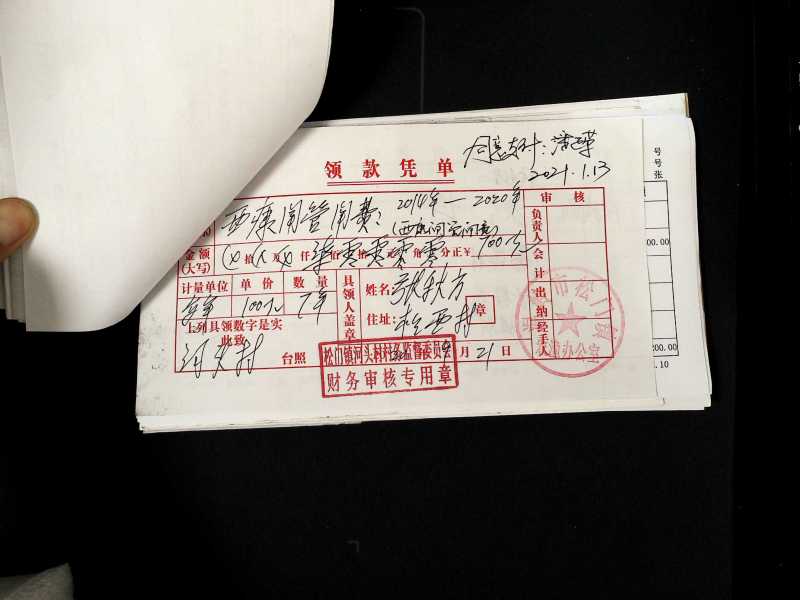 同意支付:
2021.1.13
领款凭单
闸管闸费: 2014年—2020年
审核
负责人
金额
(大写)
拾 万 仟 柒 零 零 零 零 分正¥ 700元
会计
计量单位 单价 数量
每年 100元 7年
具领人盖章
姓名 秋方
住址: 松西村
章
出纳
经手人
上列具领数字是实
此致
河头村 台照
月 21 日
松门镇河头村村务监督委员会
财务审核专用章
市松门镇
办公室
号
号
张
00.00
200.00
.10